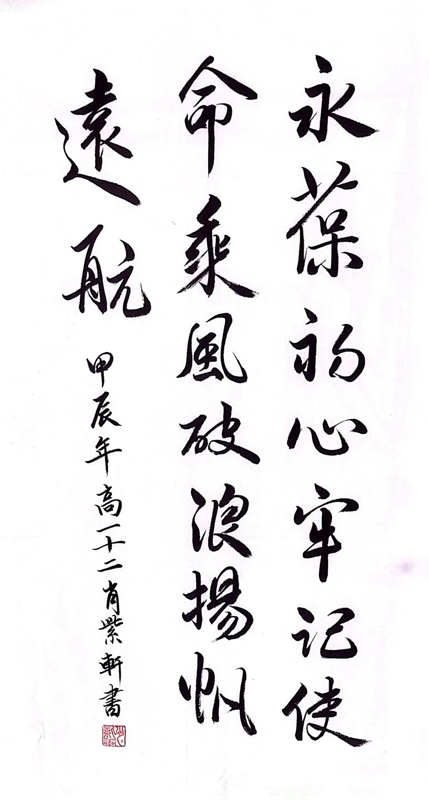 永葆初心牢记使
命乘風破浪揚帆
遠航
甲辰年高一十二肖紫軒書